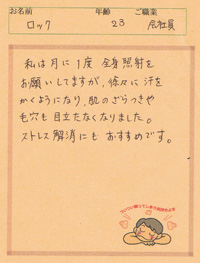 お名前 年齢 ご職業
ロック 23 会社員
私は月に1度 全身照射を
お願いしてますが、徐々に汗を
かくようになり、肌のざらつきや
毛穴も目立たなくなりました。
ストレス解消にも おすすめです。